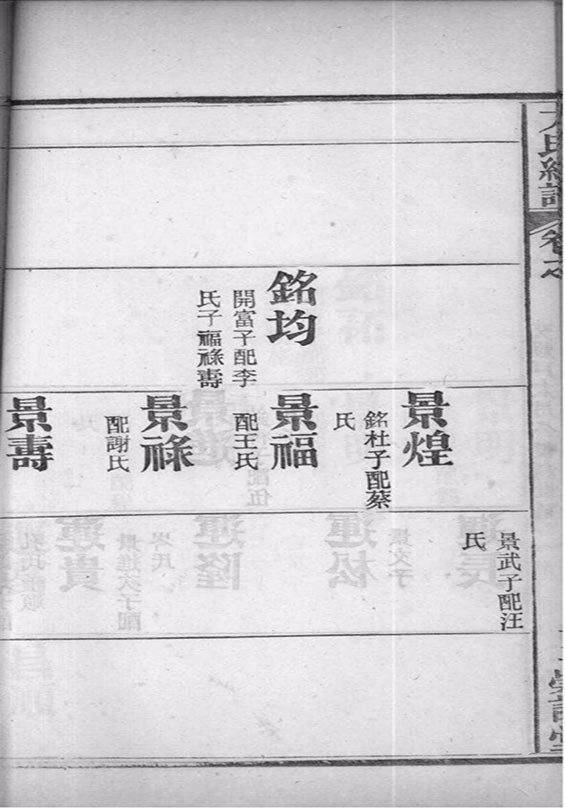 氏總譜
卷
銘均
開富子配李
氏子福祿壽
景煌
銘杜子配蔡
氏
景福
配王氏
景祿
配謝氏
景壽
景武子配汪
氏